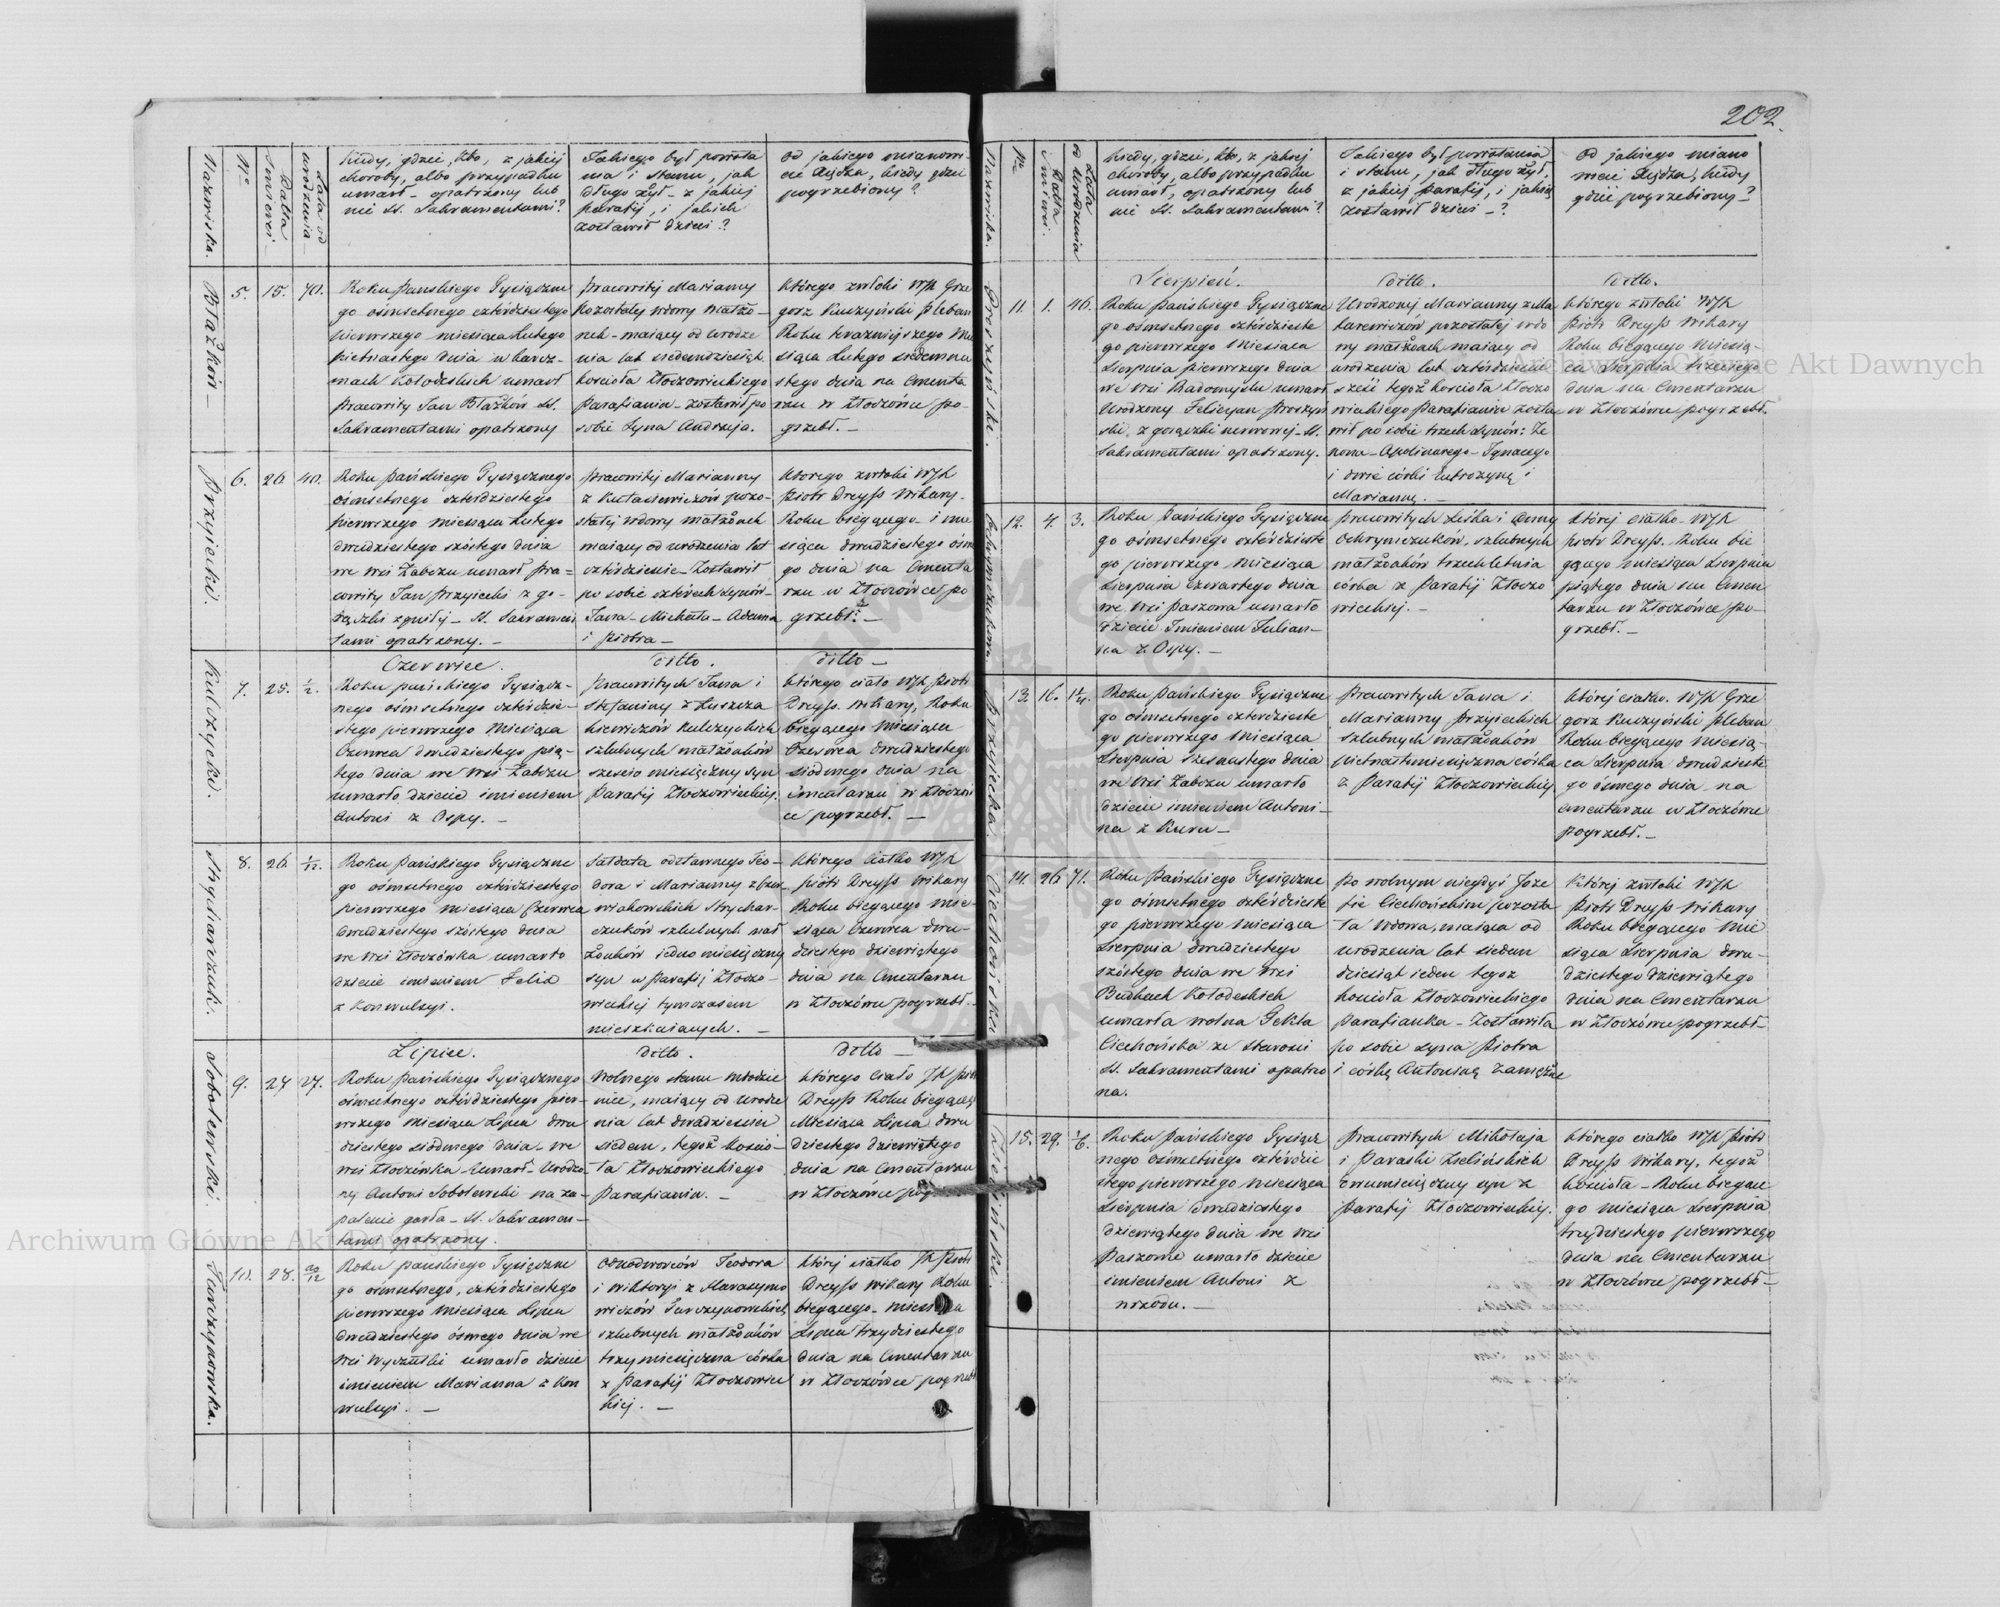 202.
Nazwiska.
No
Datta Śmierci.
Lata od urodzenia
kiedy, gdzie, kto, z jakiej
choroby, albo przypadku
umarł – opatrzony lub
nie SS. Sakramentami?
Jakiego był powoła
nia i stanu, jak
długo żył – z jakiej
parafij, i jakich
zostawił dzieci?
Od jakiego mianowi-
cie Xiędza, kiedy gdzie
pogrzebiony?
Błażkoń –
5. 15. 70.
Roku Pańskiego Tysiączne
go ośmsetnego czterdziestego
pierwszego miesiąca Lutego
pietnastego dnia w karcz-
mach Kołodeskich umarł
Pracowity Jan Błażków SS.
Sakramentami opatrzony
Pracowitej Marianny
Pozostałej wdowy małżo-
nek – maiący od urodze
nia lat siedemdziesiąt
kościoła Złoczowieckiego
Parafianin – zostawił po
sobie Syna Andrzeja.
którego zwłoki WJX Grze
gorz Kuczyński Pleban
Roku terazniejszego Mie
siąca Lutego siedemna
stego dnia na Cmenta
rzu w Złoczówce po-
grzebł. –
Przyjecki.
6. 26 40.
Roku Pańskiego Tysiącznego
ośmsetnego czterdziestego
pierwszego miesiąca Lutego
dwudziestego szóstego dnia
we wsi Zabczu umarł Pra=
cowity Jan Przyjecki z go-
rączki zgniłej – SS. Sakramen
tami opatrzony. –
Pracowitej Marianny
z Kutasiewiczów pozo-
stałej wdowy małżonek
maiący od urodzenia lat
czterdzieście – Zostawił
po sobie czterech synów –
Jana – Michała – Adama
i Piotra –
którego zwłoki WJX
Piotr Dreyss Wikary.
Roku biegącego i mie
siąca dwudziestego ósm
go dnia na Cmenta
rzu w Złoczówce po
grzebł. –
Kulczycki.
7. 25. 1/2.
Czerwiec.
Roku pańskiego Tysiącz-
nego ośmsetnego czterdzie-
stego pierwszego Miesiąca
Czerwca dwudziestego pią-
tego dnia we wsi Zabczu
umarło dziecie imieniem
Antoni z Ospy. –
ditto.
Pracowitych Jana i
Stefaniny z Łuszcza
kiewiczów Kulczyckich
szlubnych małżonków
sześcio miesięczny syn
Parafij Złoczowieckiej.
ditto –
którego ciało WJX Piotr
Dreyss. Wikary, Roku
biegącego Miesiąca
Czerwca dwudziestego
siódmego dnia na
Cmentarzu w Złoczów
ce pogrzebł. –
Strycharczuk.
8. 26 1/12.
Roku Pańskiego Tysiączne
go ośmsetnego czterdziestego
pierwszego miesiąca Czerwca
Dwudziestego szóstego dnia
we wsi Złoczówka umarło
dziecie imieniem Felix
z Konwulsyi.
Sałdata odstawnego Teo-
dora i Marianny
Strychar-
czuków szlubnych mał
żonków iedno miesięczny
syn w parafij Złoczo-
wieckiej tymczasem
mieszkaiących. –
którego Ciałko WJX
Piotr Dreyss Wikary
Roku biegącego Mie-
siąca Czerwca dwu-
dziestego dziewiątego
dnia na Cmentarzu
w Złoczówce pogrzebł. –
Sobolewski.
9. 27 27.
Lipiec.
Roku Pańskiego Tysiącznego
ośmsetnego czterdziestego pier-
wszego miesiąca Lipca dwu
dziestego siódmego dnia we
wsi Złoczówka – umarł Urodzo-
ny Antoni Sobolewski na za-
palenie garła – SS. Sakramen-
tami opatrzony.
ditto.
Wolnego stanu młodzie
niec, maiący od urodze
nia lat dwadzieścia
siedem, tegoż kościo-
ła Złoczowieckiego
Parafianin. –
ditto –
którego ciało JX Piotr
Dreyss Roku biegącego
Miesiąca Lipca dwu
dziestego dziewiątego
dnia na Cmentarzu
w Złoczówce pog
Turczynowska.
10. 28.
Roku pańskiego Tysiączne
go ośmsetnego, czterdziestego
pierwszego miesiąca Lipca
Dwudziestego ósmego dnia we
wsi Wyczułki umarło dziecie
imieniem Marianna z Kon
wulsyi. –
Odnodworców Teodora
i Wiktoryi z Harasymo
wiczów Turczynowskich
szlubnych małżonków
trzymiesięczna córka
z Parafij Złoczowiec
kiej. –
której ciałko JX Piotr
Dreyss Wikary Roku
biegącego – miesiąca
Lipca trzydziestego
dnia na Cmentarzu
w Złoczówce pogrzebł
Nazwiska.
No
Datta Śmierci.
Lata od urodzenia
kiedy, gdzie, kto, z jakiej
choroby, albo przypadku
umarł, opatrzony lub
nie SS. Sakramentami?
Jakiego był powołania
i stanu, jak długo żył,
z jakiej Parafij, i jakie
zostawił dzieci –?
Od jakiego miano
wicie Xiędza, kiedy
gdzie pogrzebiony?
Proszyński.
11. 1. 46.
Sierpień.
Roku Pańskiego Tysiączne
go ośmsetnego czterdzieste
go pierwszego Miesiąca
Sierpnia pierwszego dnia
we wsi Radomyślu umarł
Urodzony Felicyan Proszyń
ski, z gorączki nerwowej – SS.
Sakramentami opatrzony.
ditto.
Urodzonej Marianny z Ma
karewiczów pozostałej wdo
wy małżonek maiący od
urodzenia lat czterdzieście
sześć tegoż kościoła Złoczo
wieckiego Parafianin zosta
wił po sobie trzech synów: Ze
nona – Apolinarego – Ignacego
i dwie córki Eufrozynę i
Mariannę. –
ditto.
którego zwłoki WJX
Piotr Dreyss Wikary
Roku biegącego Miesią-
ca Sierpnia trzeciego
dnia na Cmentarzu
w Złoczówce pogrzebł.
12. 4. 3.
Roku Pańskiego Tysiączne
go ośmsetnego czterdzieste
go pierwszego miesiąca
Sierpnia Czwartego dnia
we wsi Paszowa umarło
dziecie Imieniem Julian-
na z Ospy. –
Pracowitych Leśka i Domny
Ochrymczuków, szlubnych
małżonków trzechletnia
córka z Parafij Złoczo
wieckiej. –
której ciałko – WJX
Piotr Dreyss. Roku bie
gącego miesiąca Sierpnia
piątego dnia na Cmen
tarzu w Złoczówce po-
grzebł. –
Przyjecka
13. 16.
Roku Pańskiego Tysiączne
go ośmsetnego czterdzieste
go pierwszego miesiąca
Sierpnia szesnastego dnia
we wsi Zabczu umarło
dziecie imieniem Antoni-
na z Kuru –
Pracowitych Jana i
Marianny Przyjeckich
szlubnych małżonków
pietnastomiesięczna córka
z Parafij Złoczowieckiej
której ciałko. WJX Grze
gorz Kuczyński Pleban
Roku biegącego miesią-
ca Sierpnia dwudzieste
go ósmego dnia – na
Cmentarzu w Złoczówce
pogrzebł. –
Ciechońska
14. 26 71.
Roku Pańskiego Tysiączne
go ośmsetnego czterdzieste
go pierwszego miesiąca
Sierpnia dwudziestego
szóstego dnia we wsi
Budkach Kołodeskich
umarła wolna Tekla
Ciechońska ze starości
SS. Sakramentami opatrzo
na.
po wolnym niegdyś Joze
fie Ciechońskim pozosta
ła Wdowa, maiąca od
urodzenia lat siedem
dziesiąt ieden tegoż
kościoła Złoczowieckiego
parafianka – Zostawiła
po sobie syna Piotra
i córkę Antoninę zamężne
Której zwłoki WJX
Piotr Dreyss Wikary
Roku biegącego Mie
siąca Sierpnia dwu-
dziestego dziewiątego
dnia na Cmentarzu
w Złoczówce pogrzebł –
15. 29. 1/6.
Roku Pańskiego Tysiącz
nego ośmsetnego czterdzie
stego pierwszego miesiąca
Sierpnia Dwudziestego
dziewiątego dnia we wsi
Paszowie umarło dziecie
imieniem Antoni z
wrzodu. –
Pracowitych Mikołaja
i Paraski Zielińskich
Dwumiesięczny syn z
Parafij Złoczowieckiej.
którego ciałko WJX Piotr
Dreyss Wikary, tegoż
kościoła – Roku biegące
go miesiąca Sierpnia
trzydziestego pierwszego
dnia na Cmentarzu
w Złoczówce pogrzebł –
Archiwum Główne Akt Dawnych
Archiwum Główne Akt Dawnych